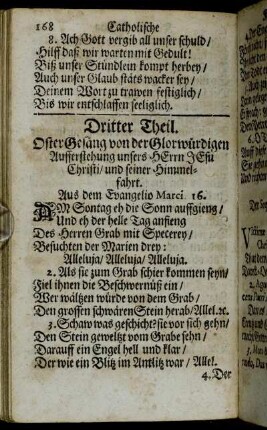 168 Catholische
8. Ach Gott vergib all unser schuld/
Hilff daß wir warten mit Gedult!
Biß unser Stündlein kompt herbey/
Auch unser Glaub stäts wacker sey/
Deinem Wort zu trawen festiglich/
Bis wir entschlaffen seeliglich.
Dritter Theil.
Oster Gesäng von der Glorwürdigen
Aufferstehung unsers HErrn JEsu
Christi/ und seiner Himmel-
fahrt.
Aus dem Evangelio Marci 16.
AM Sontag eh die Sonn auffgieng/
Und eh der helle Tag anfieng
Des Herren Grab mit Specerey/
Besuchten der Marien drey:
Alleluja/ Alleluja/ Alleluja.
2. Als sie zum Grab schier kommen seyn/
Fiel ihnen die Beschwernüß ein/
Wer wältzen würde von dem Grab/
Den grossen schwären Stein herab/ Allel. ꝛc.
3. Schaw was geschicht? sie vor sich gehn/
Den Stein geweltzt vom Grabe sehn/
Darauff ein Engel hell und klar/
Der wie ein Blitz im Antlitz war/ Allel.
4. Der